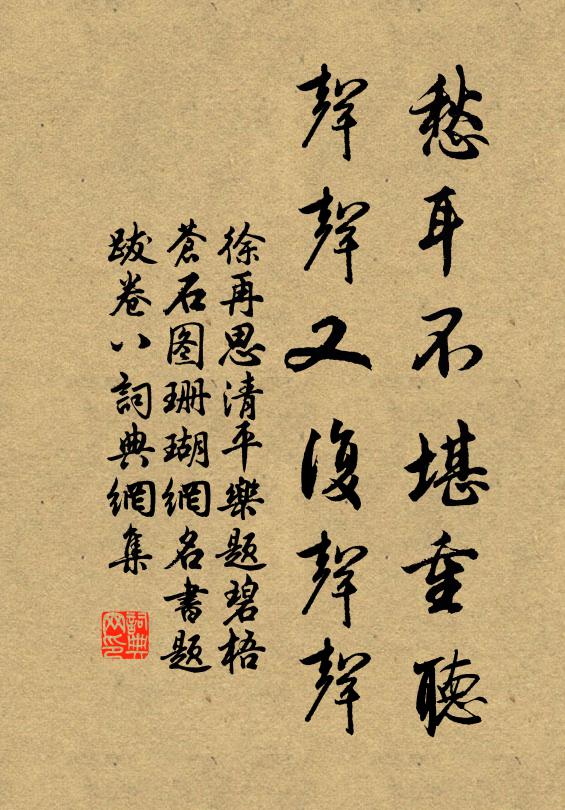 愁耳不堪重聽
聲聲又復聲聲
徐再思清平樂題碧梧
蒼石图珊瑚網名書題
跋卷八詞典網集
詞典网印